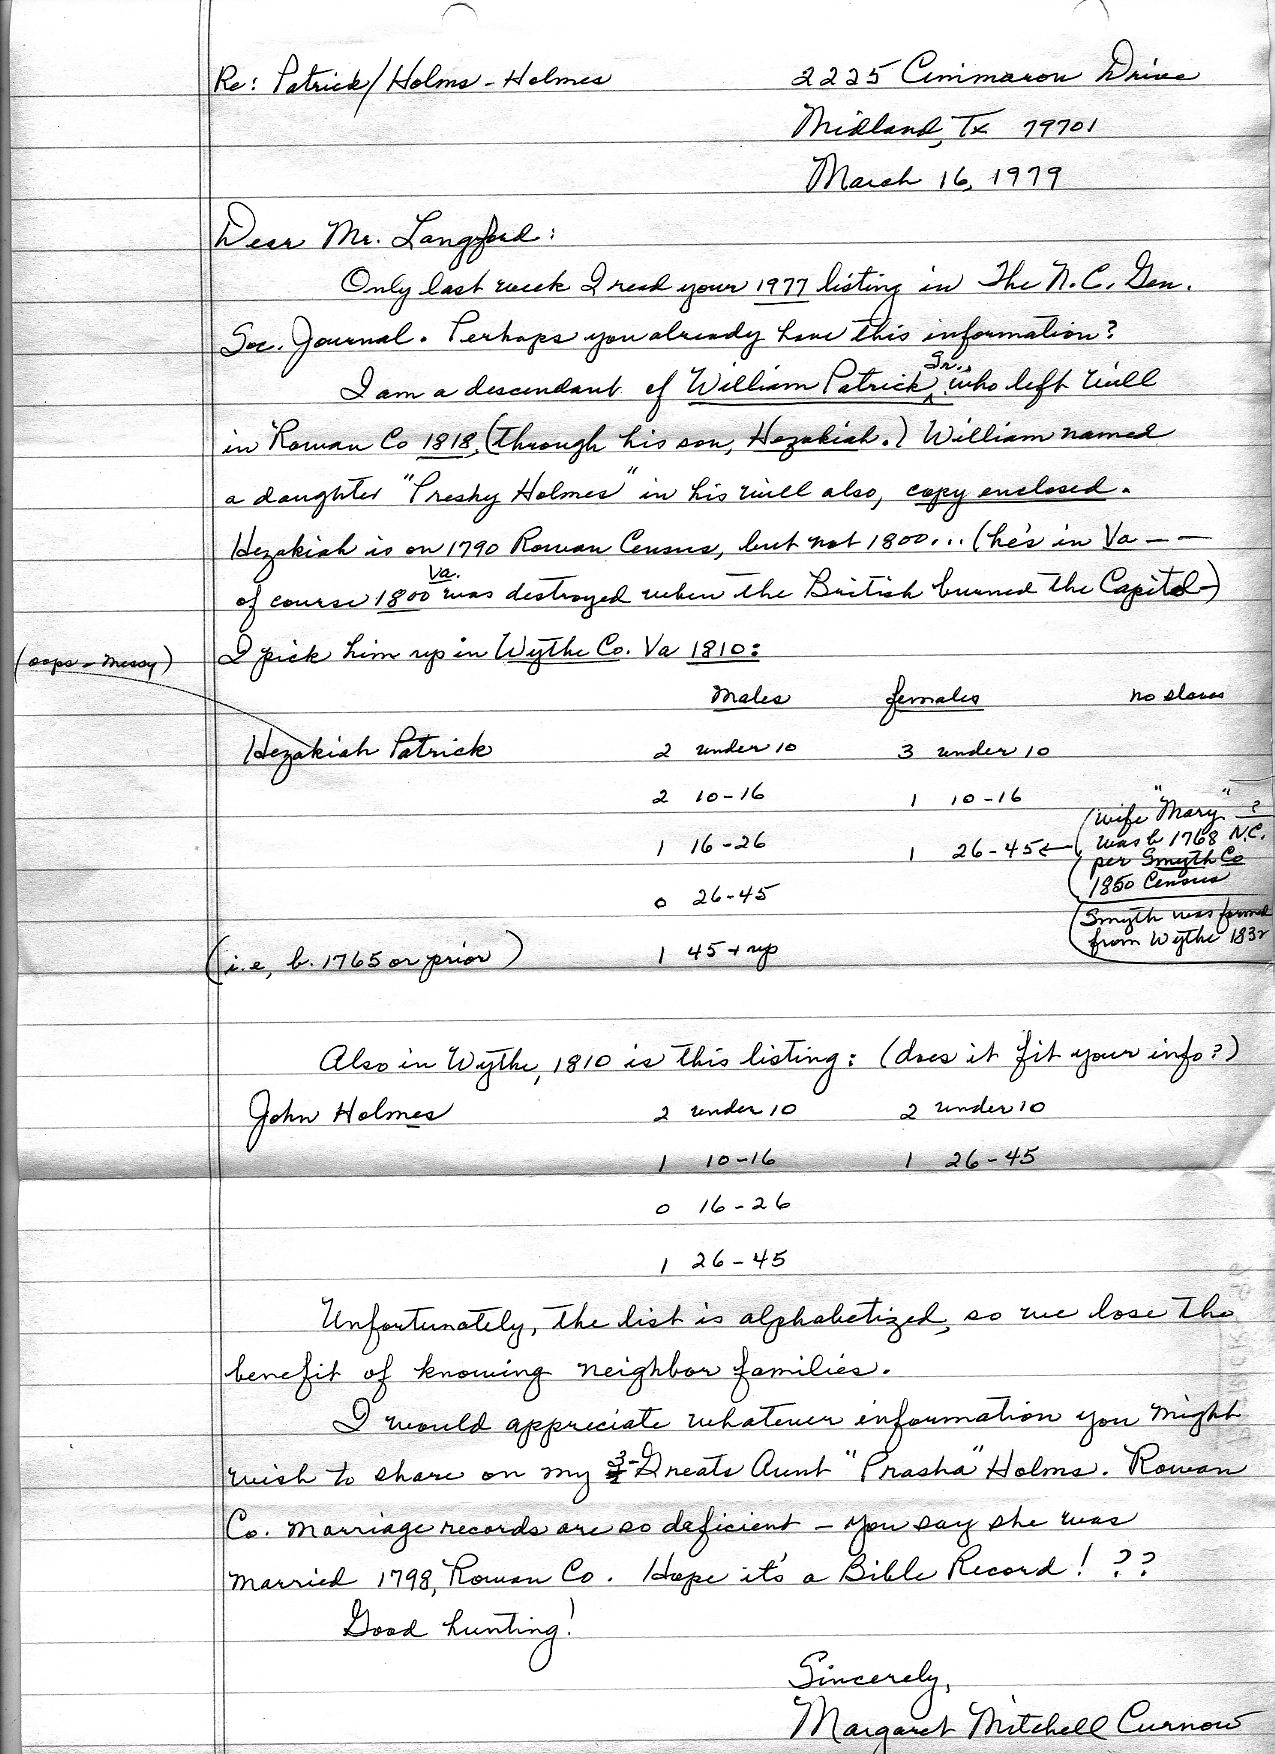 Re: Patrick/Holms-Holmes
2225 Cimmaron Drive
Midland, Tx 79701
March 16, 1979
Dear Mr. Langford:
Only last week I read your 1977 listing in The N.C. Gen.
Soc. Journal. Perhaps you already have this information?
I am a descendant of William Patrick Sr., who left will
in Rowan Co 1818, (through his son, Hezakiah.) William named
a daughter "Preshy Holmes" in his will also, copy enclosed.
Hezakiah is on 1790 Rowan Census, but not 1800... (he's in Va --
of course 1800 Va. was destroyed when the British burned the Capitol-)
(oops - messy) I pick him up in Wythe Co. Va 1810:
Males females no slaves
Hezakiah Patrick 2 under 10 3 under 10
2 10-16 1 10-16
1 16-26 1 26-45 ←
(wife "Mary" ?
was b 1768 N.C.
per Smyth Co
1850 Census
(Smyth was formed
from Wythe 1832
0 26-45
(i.e, b. 1765 or prior) 1 45 + up
Also in Wythe, 1810 is this listing: (does it fit your info?)
John Holmes 2 under 10 2 under 10
1 10-16 1 26-45
0 16-26
1 26-45
Unfortunately, the list is alphabetized, so we lose the
benefit of knowing neighbor families.
I would appreciate whatever information you might
wish to share on my 3-Greats Aunt "Prasha" Holms. Rowan
Co. marriage records are so deficient - you say she was
married 1798, Rowan Co. Hope it's a Bible Record! ??
Good hunting!
Sincerely,
Margaret Mitchell Curnow